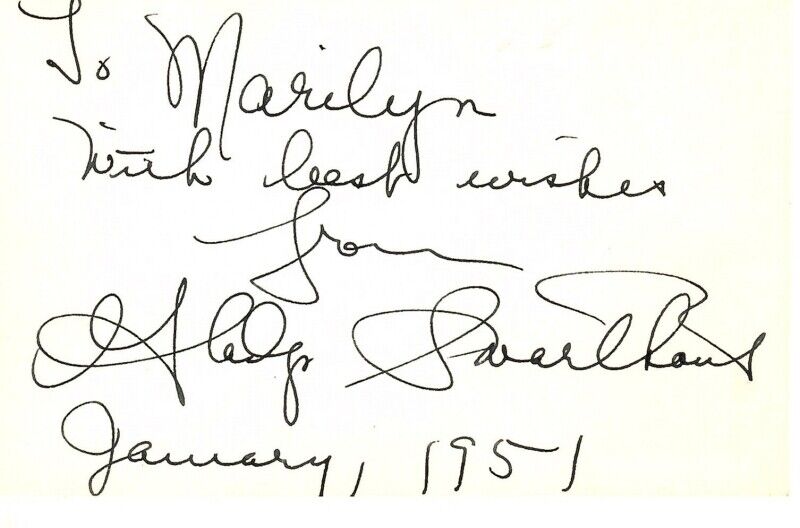 To Marilyn
With best wishes
from
Gladys Swarthout
January, 1951